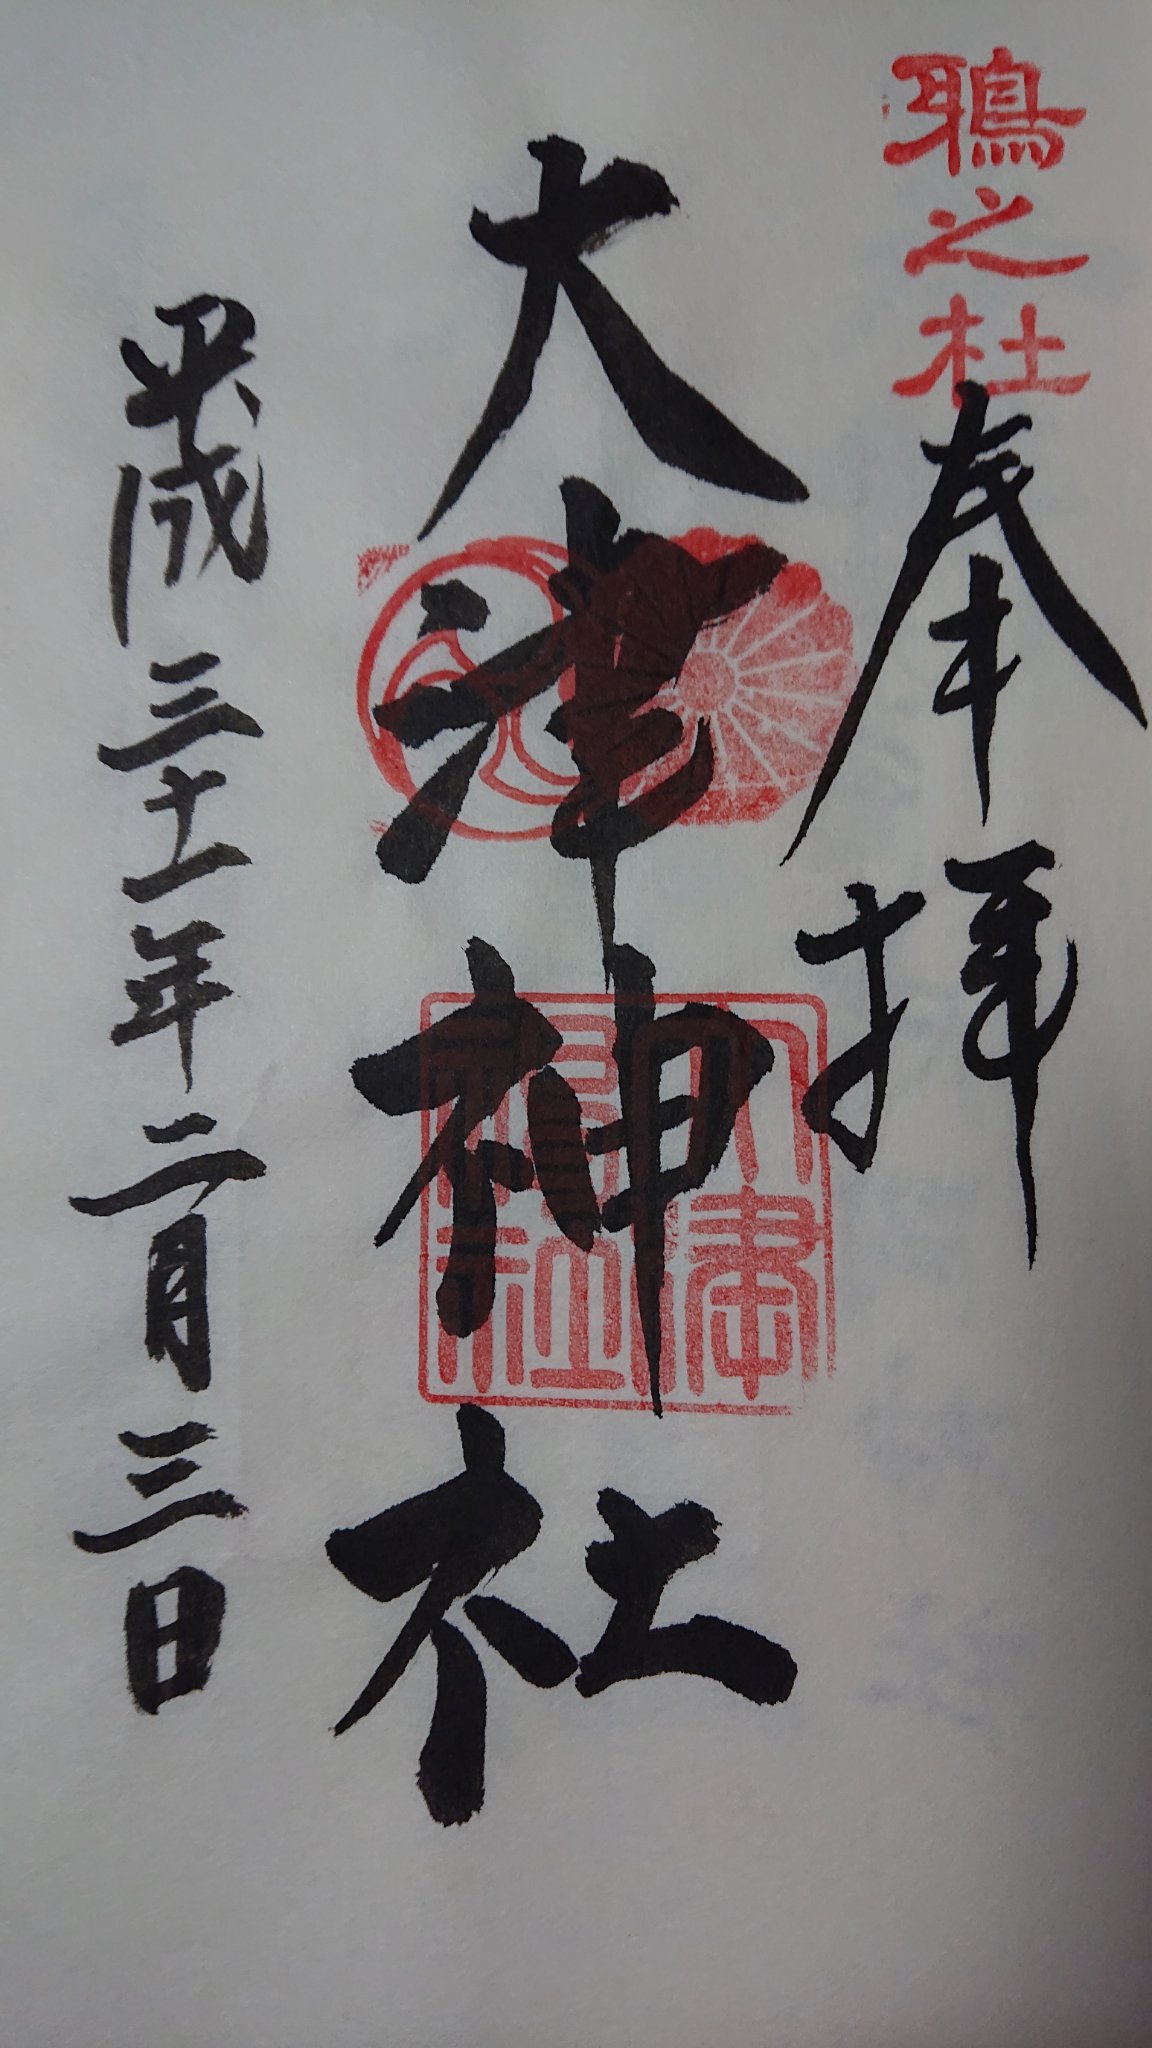 之杜
奉拝
大津神社
大津
神社
平成三十一年二月三日